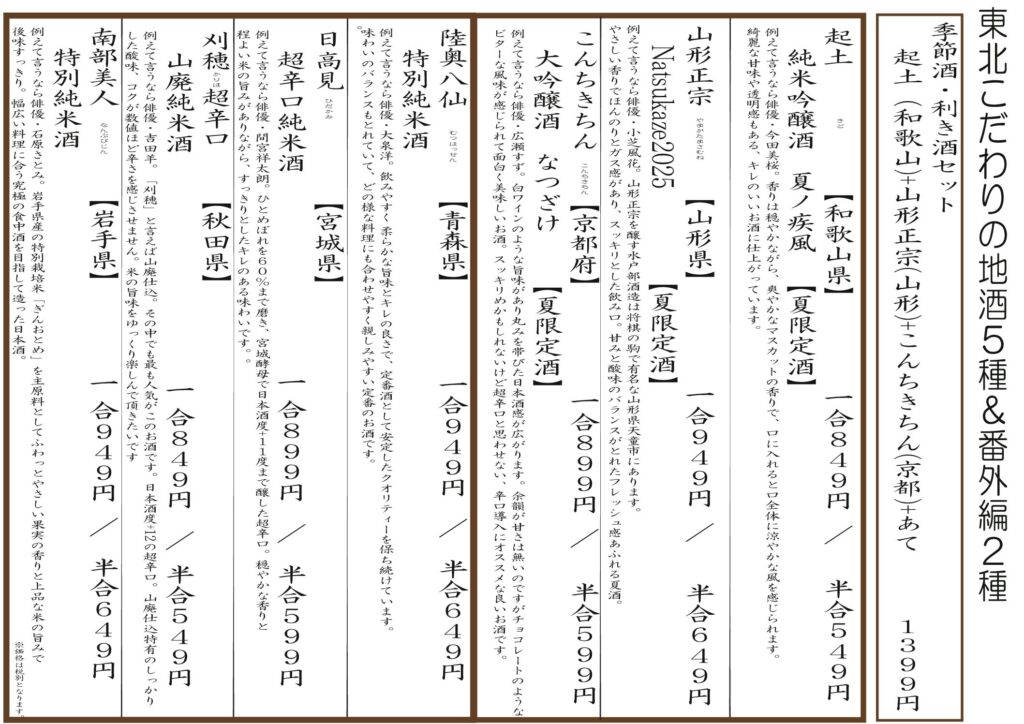 東北こだわりの地酒5種&番外編2種
季節酒・利き酒セット
起土(和歌山)+山形正宗(山形)+こんちきちん(京都)+あて 1399円
起土 きど 【和歌山県】 一合849円 / 半合549円
純米吟醸酒 夏ノ疾風 【夏限定酒】
例えて言うなら俳優・今田美桜。香りは穏やかながら、爽やかなマスカットの香りで、口に入れると口全体に涼やかな風を感じられます。
綺麗な甘味や透明感もある、キレのいいお酒に仕上がっています。
山形正宗 やまがたまさむね 【山形県】 一合949円 / 半合649円
Natsukaze2025 【夏限定酒】
例えて言うなら俳優・小芝風花。山形正宗を醸す水戸部酒造は将棋の駒で有名な山形県天童市にあります。
やさしい香りでほんのりとガス感があり、スッキリとした飲み口。甘みと酸味のバランスがとれたフレッシュ感あふれる夏酒。
こんちきちん こんちきちん 【京都府】 一合899円 / 半合599円
大吟醸酒 なつざけ 【夏限定酒】
例えて言うなら俳優・広瀬すず。白ワインのような旨味があり丸みを帯びた日本酒感が広がります。余韻が甘さは無いのですがチョコレートのような
ビターな風味が感じられて面白く美味しいお酒。スッキリめかもしれないけど超辛口と思わせない、辛口導入にオススメな良いお酒です。
陸奥八仙 むつはっせん 【青森県】 一合949円 / 半合649円
特別純米酒
例えて言うなら俳優・大泉洋。飲みやすく柔らかな旨味とキレの良さで、定番酒として安定したクオリティーを保ち続けています。
味わいのバランスもとれていて、どの様な料理にも合わせやすく親しみやすい定番のお酒です。
日高見 ひだかみ 【宮城県】 一合899円 / 半合599円
超辛口純米酒
例えて言うなら俳優・間宮祥太朗。ひとめぼれを60%まで磨き、宮城酵母で日本酒度+11度まで醸した超辛口。穏やかな香りと
程よい米の旨みがありながら、すっきりとしたキレのある味わいです。。
刈穂 かりほ 超辛口 【秋田県】 一合849円 / 半合549円
山廃純米酒
例えて言うなら俳優・吉田羊。「刈穂」と言えば山廃仕込。その中でも最も人気がこのお酒です。日本酒度+12の超辛口。山廃仕込特有のしっかり
した酸味、コクが数値ほど辛さを感じさせません。米の旨味をゆっくり楽しんで頂きたいです
南部美人 なんぶびじん 【岩手県】 一合949円 / 半合649円
特別純米酒
例えて言うなら俳優・石原さとみ。岩手県産の特別栽培米「ぎんおとめ」を主原料としてふわっとやさしい果実の香りと上品な米の旨みで
後味すっきり。幅広い料理に合う究極の食中酒を目指して造った日本酒。
※価格は税別となります。